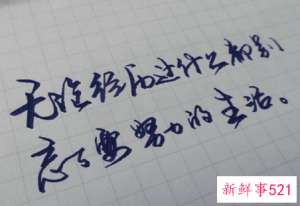 无论经历过什么都别
忘了要努力的生活。
新鲜事521